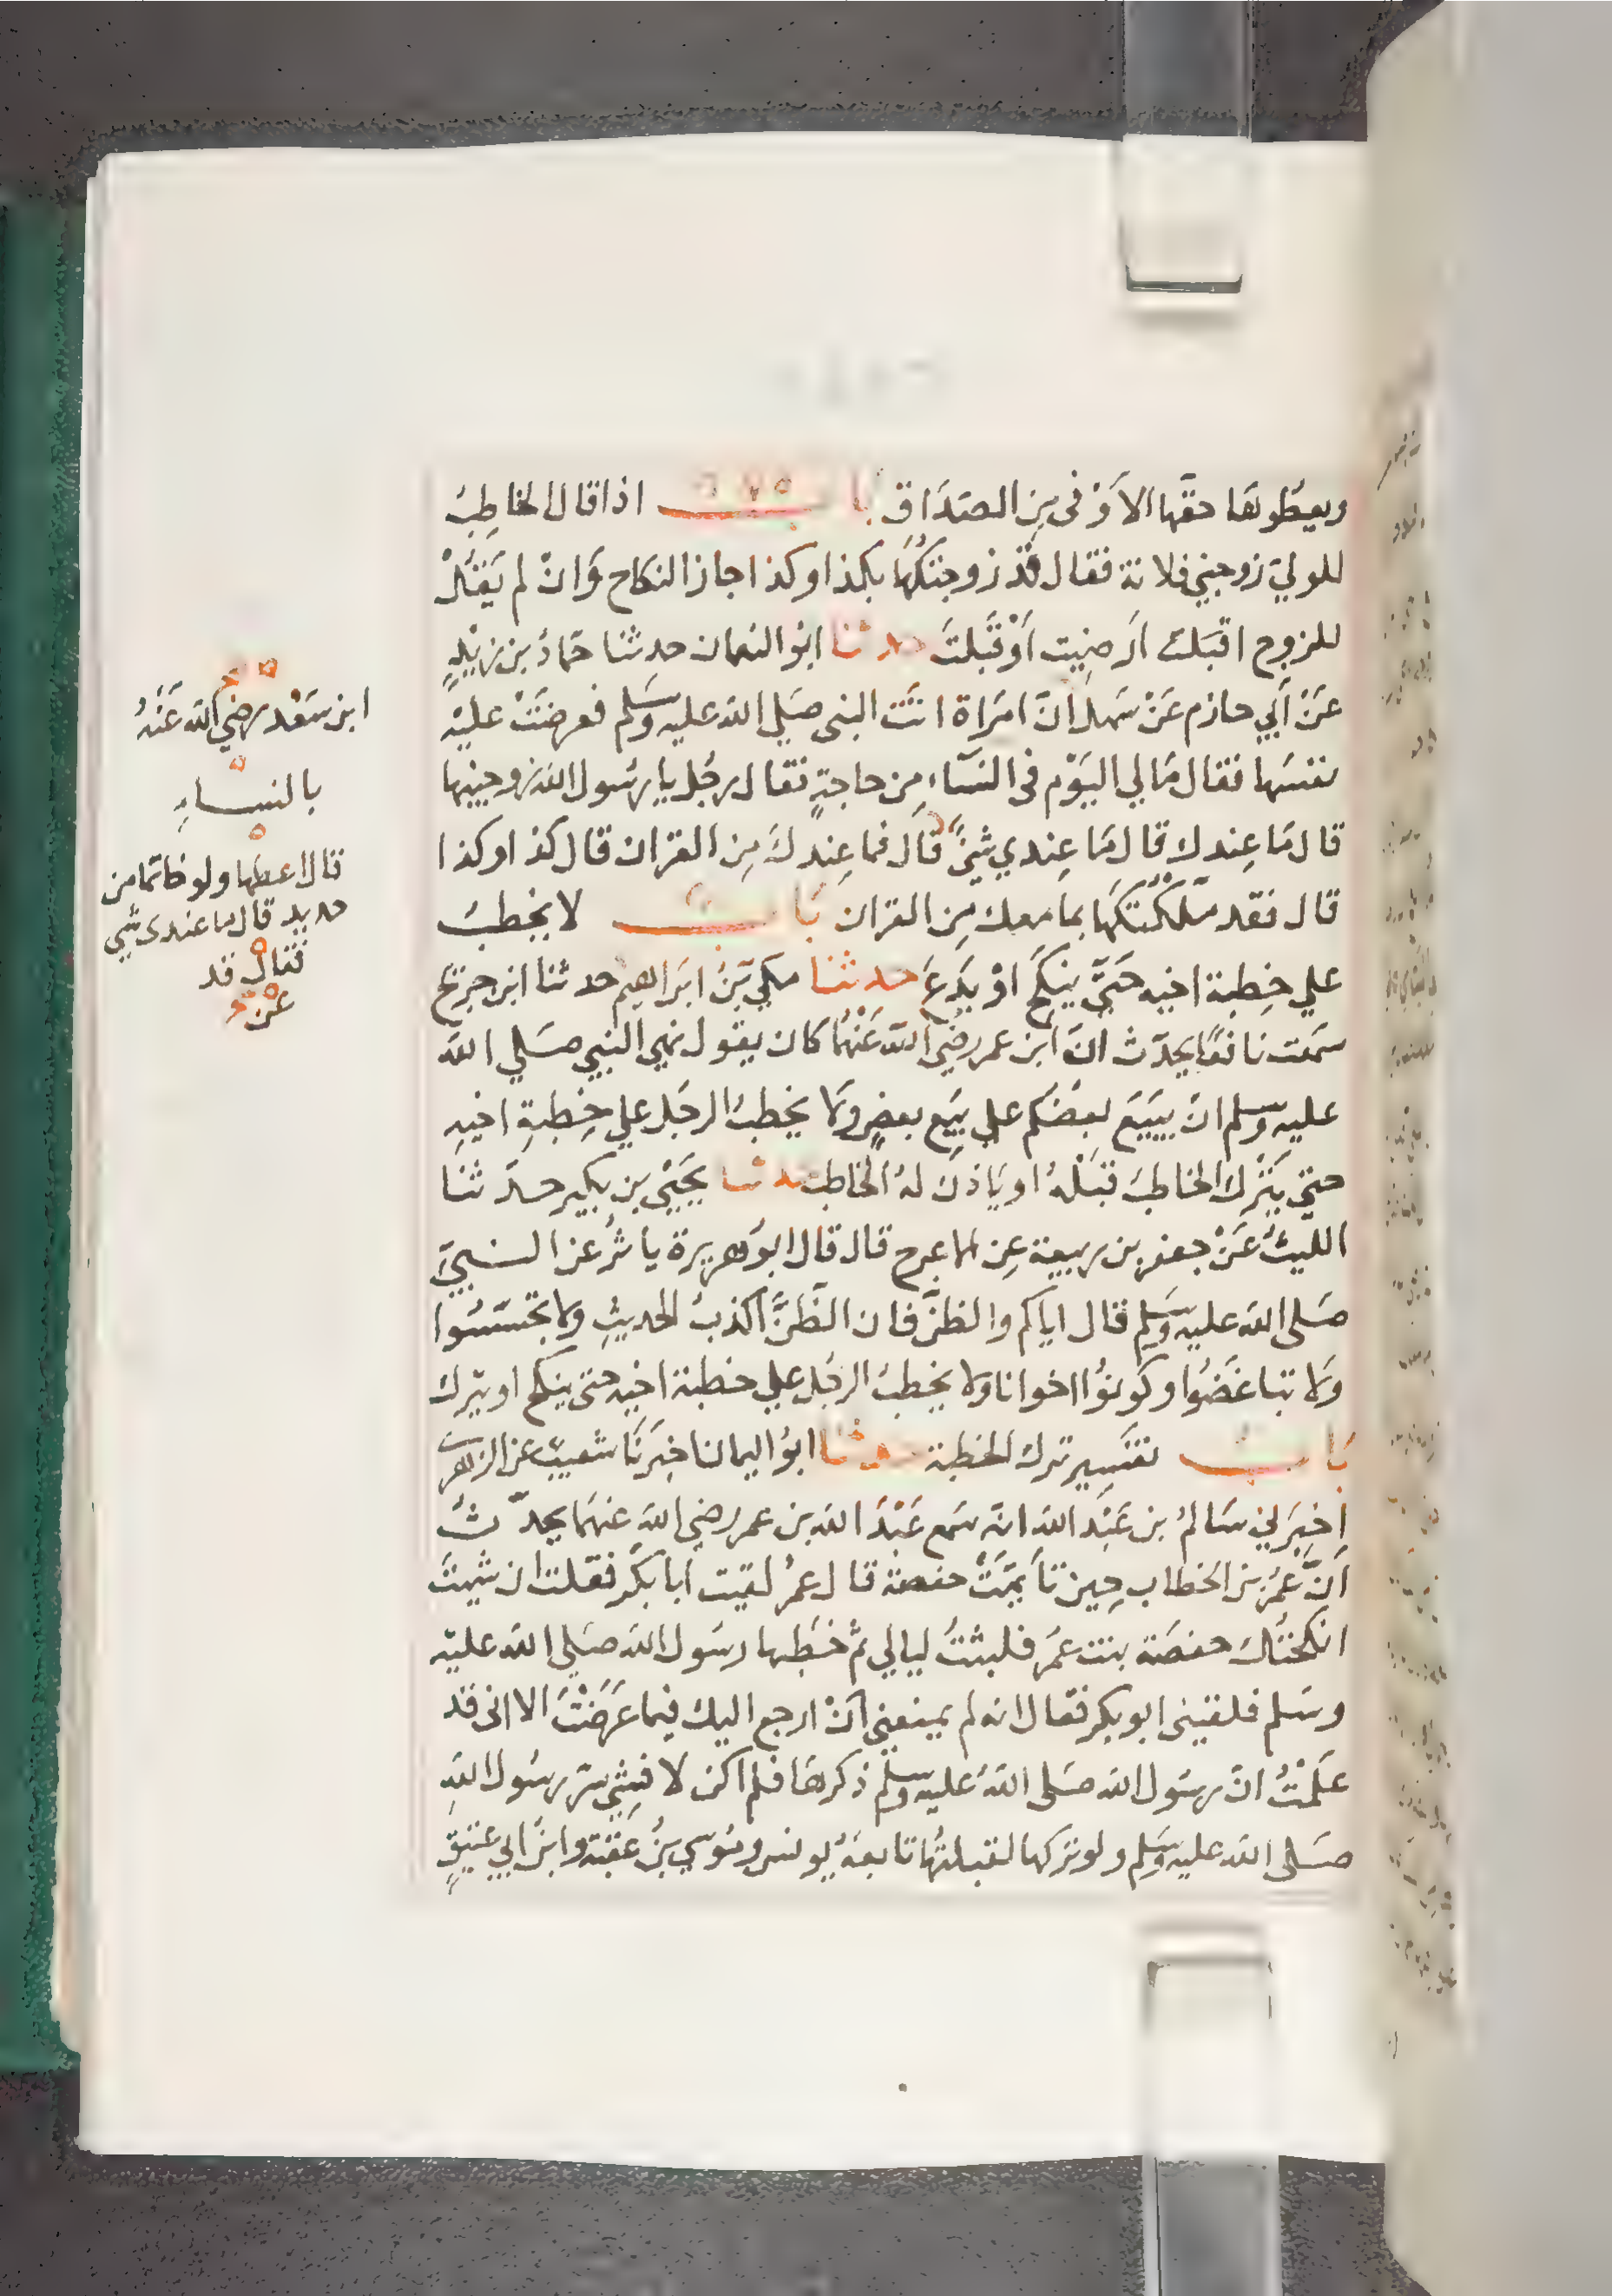 ويعطوها حقها الاوفى من الصداق باب اذا قال الخاطب
للولي زوجني فلانة فقال قد زوجتكها بكذا وكذا جاز النكاح وان لم يقل
للزوج اقبلت ارضيت او قبلت حدثنا ابو النعمان حدثنا حماد بن زيد
عن أبي حازم عن سهل ان امراة اتت النبي صلي الله عليه وسلم فعرضت عليه
نفسها فقال مالي اليوم في النساء من حاجة فقال رجل يا رسول الله زوجنيها
قال ما عندك قال ما عندي شيئ قال فما عندك من القران قال كذا وكذا
قال فقد ملكتكها بما معك من القران باب لا يخطب
علي خطبة اخيه حتي ينكح او يدع حدثنا مكي بن ابراهيم حدثنا ابن جريج
سمعت نافعا يحدث ان ابن عمر رضي الله عنهما كان يقول نهي النبي صلي الله
عليه وسلم ان يبيع بعضكم علي بيع بعض ولا يخطب الرجل علي خطبة اخيه
حتي يترك الخاطب قبله او ياذن له الخاطب حدثنا يحيي بن بكير حدثنا
الليث عن جعفر بن ربيعة عن الاعرج قال قال ابو هريرة ياثر عن النبي
صلى الله عليه وسلم قال اياكم والظن فان الظن اكذب الحديث ولا تجسسوا
ولا تباغضوا وكونوا اخوانا ولا يخطب الرجل علي خطبة اخيه حتى ينكح او يترك
باب تفسير ترك الخطبة حدثنا ابو اليمان اخبرنا شعيب عن الزهري
اخبرني سالم بن عبد الله انه سمع عبد الله بن عمر رضي الله عنهما يحدث
ان عمر بن الخطاب حين تايمت حفصة قال عمر لقيت ابا بكر فقلت ان شيت
انكحتك حفصة بنت عمر فلبثت ليالي ثم خطبها رسول الله صلي الله عليه
وسلم فلقيني ابو بكر فقال انه لم يمنعني ان ارجع اليك فيما عرضت الا اني قد
علمت ان رسول الله صلى الله عليه وسلم ذكرها فلم اكن لافشي سر رسول الله
صلى الله عليه وسلم ولو تركها لقبلتها تابعه يونس وموسي بن عقبة وابن ابي عتيق
ابن سعد رضي الله عنه
بالنساء
قال اعطها ولو خاتما من
حديد قال ما عندي شي
فقال قد
عن